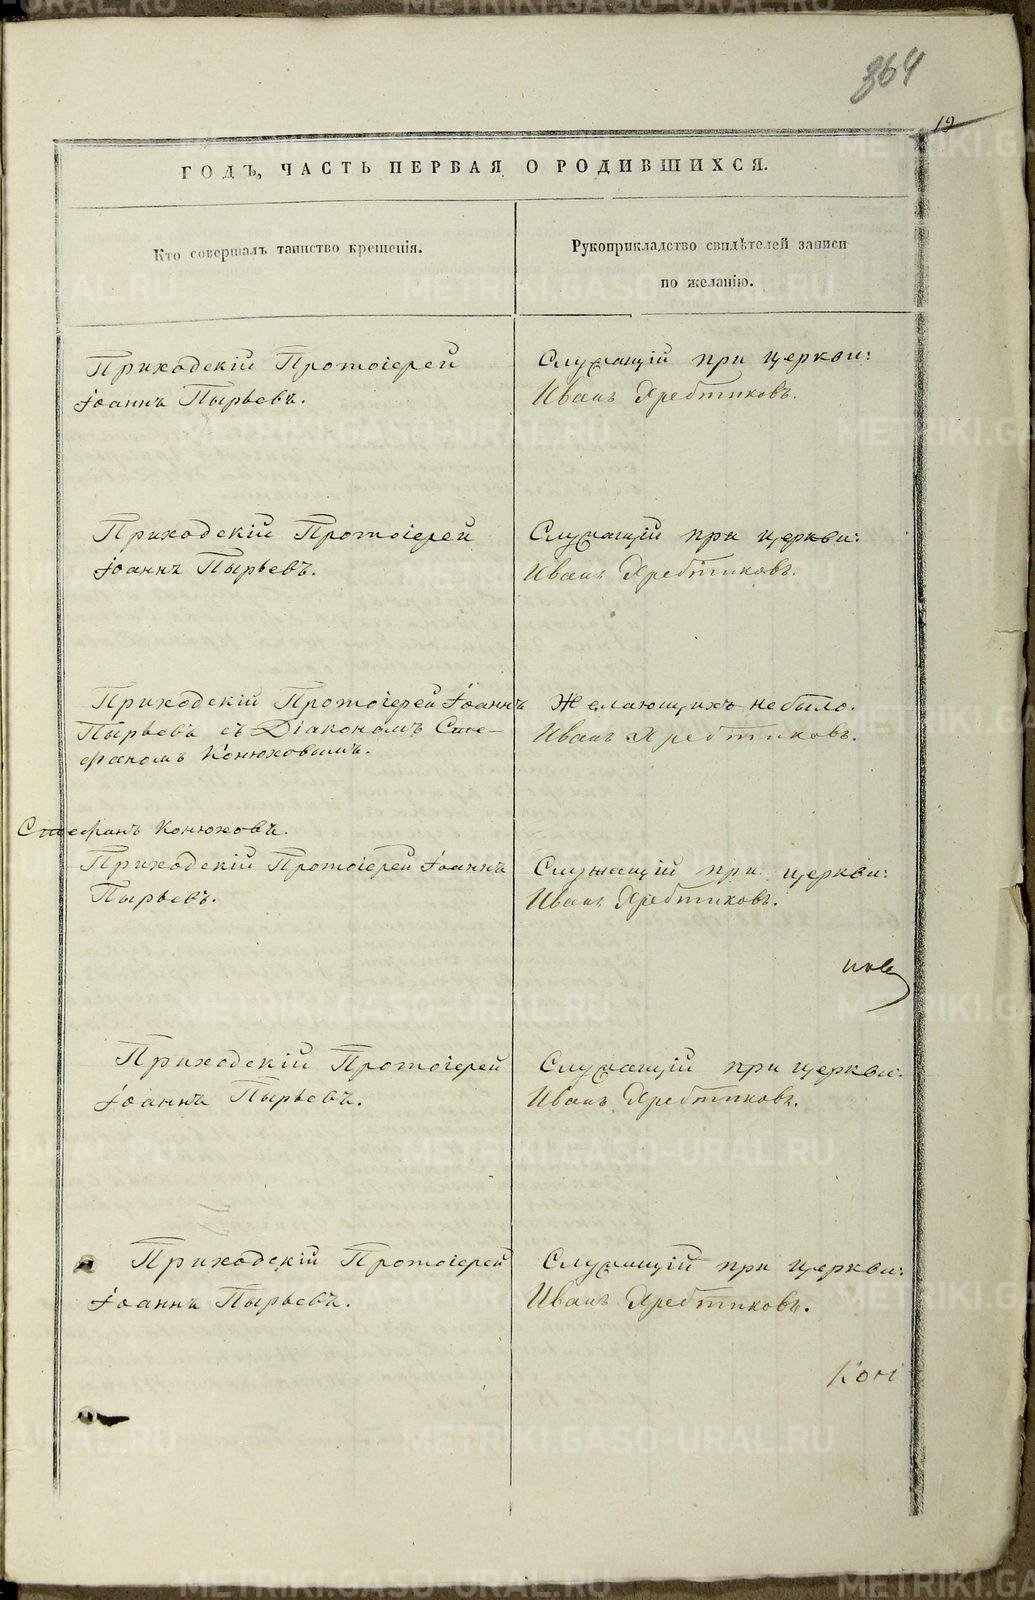 364
19
ГОДЪ, ЧАСТЬ ПЕРВАЯ О РОДИВШИХСЯ.
Кто совершалъ таинство крещенія.
Рукоприкладство свидѣтелей записи
по желанію.
Приходскій Протоіерей
Іоаннъ Пырьевъ.
Служащій при церкви:
Иванъ Хребтиковъ.
Приходскій Протоіерей
Іоаннъ Пырьевъ.
Служащій при церкви:
Иванъ Хребтиковъ.
Приходскій Протоіерей Іоаннъ
Пырьевъ съ Діакономъ Сте-
фаномъ Конюховымъ.
Желающихъ небыло.
Иванъ Хребтиковъ.
Стефанъ Конюховъ.
Приходскій Протоіерей Іоаннъ
Пырьевъ.
Служащій при церкви:
Иванъ Хребтиковъ.
Приходскій Протоіерей
Іоаннъ Пырьевъ.
Служащій при церкви:
Иванъ Хребтиковъ.
Приходскій Протоіерей
Іоаннъ Пырьевъ.
Служащій при церкви:
Иванъ Хребтиковъ.
METRIKI.GASO-URAL.RU